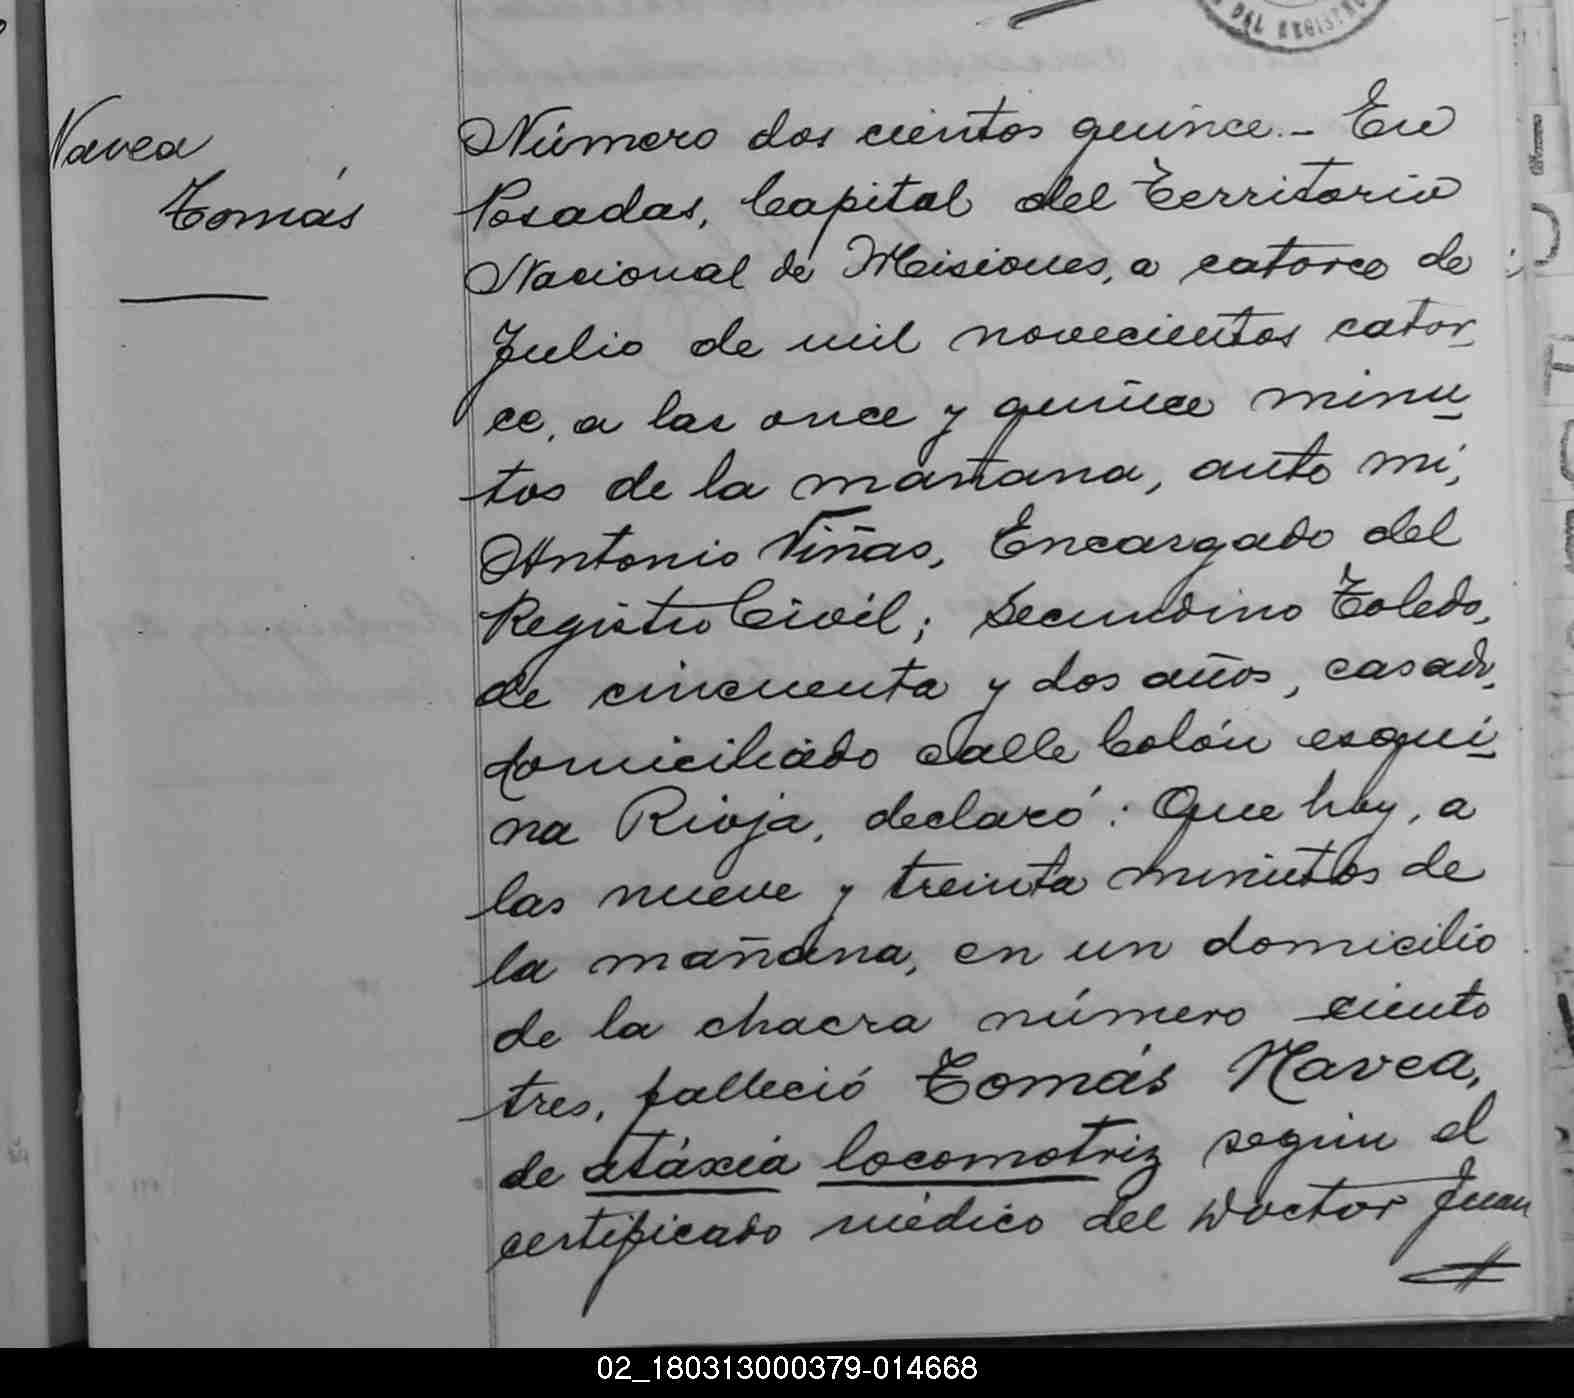 DAL REGISTRO
Navea
Tomás
Número dos cientos quince.- En
Posadas, Capital del Territorio
Nacional de Misiones, a catorce de
Julio de mil novecientos cator_
ce, a las once y quince minu_
tos de la mañana, ante mí,
Antonio Viñas, Encargado del
Registro Civil; Secundino Toledo,
de cincuenta y dos años, casado,
domiciliado calle Colón esqui_
na Rioja, declaró: Que hoy, a
las nueve y treinta minutos de
la mañana, en un domicilio
de la chacra número ciento
tres, falleció Tomás Navea,
de atáxia locomotriz según el
certificado médico del Doctor Juan
02_180313000379-014668